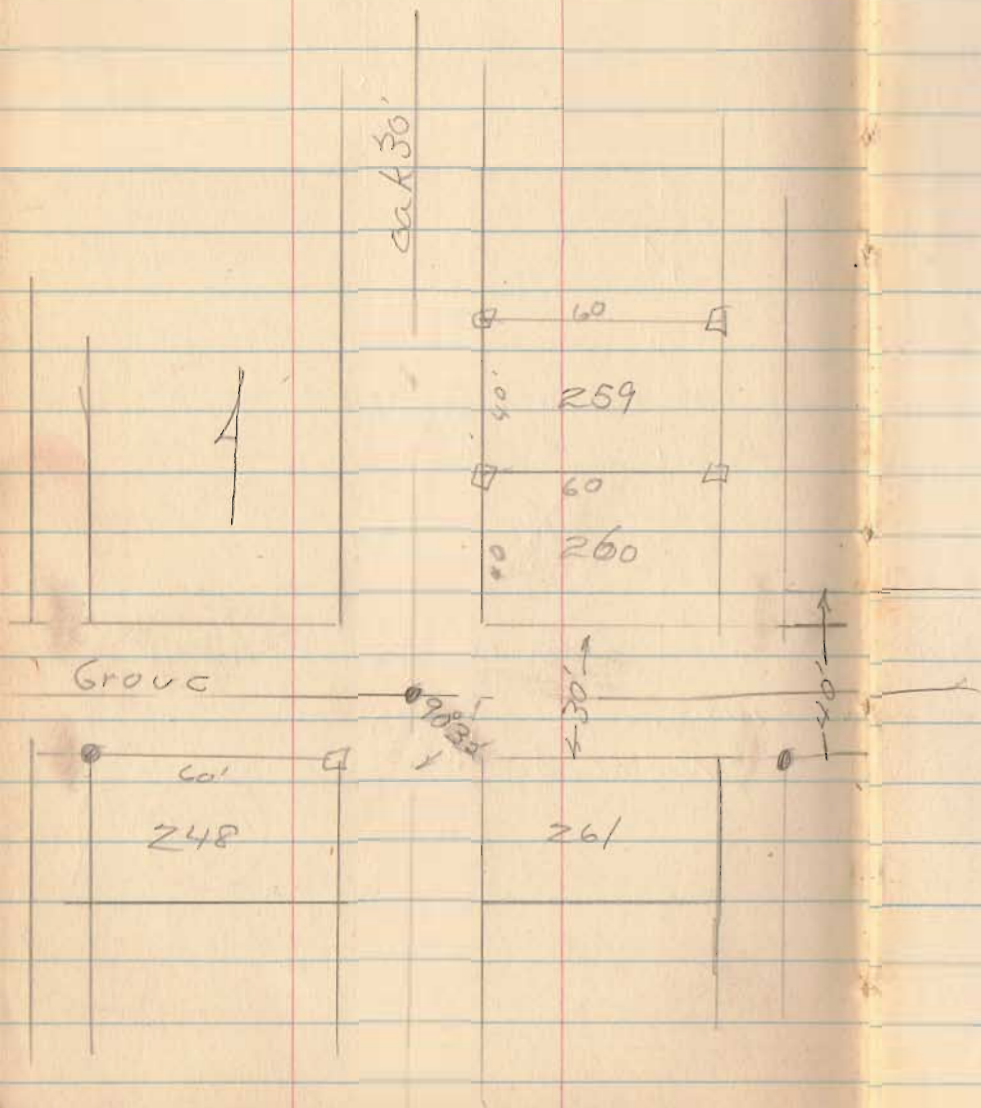 Oak 30'
60
40'
259
60
40
260
Grove
30'
40'
60'
248
261